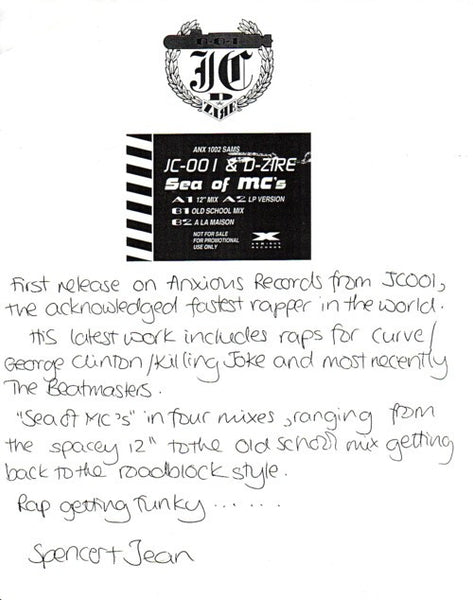 JC
D
ZIRE
ANX 1002 SAMS
JC-001 & D-ZIRE
Sea of MC's
A1 12" MIX A2 LP VERSION
B1 OLD SCHOOL MIX
B2 A LA MAISON
NOT FOR SALE
FOR PROMOTIONAL
USE ONLY
X
ANXIOUS
RECORDS
First release on Anxious Records from JC001,
the acknowledged fastest rapper in the world.
His latest work includes raps for Curve/
George Clinton/Killing Joke and most recently
The Beatmasters.
"Sea of MC's" in four mixes, ranging from
the spacey 12" to the old school mix getting
back to the roadblock style.
Rap getting Funky......
Spencer + Jean